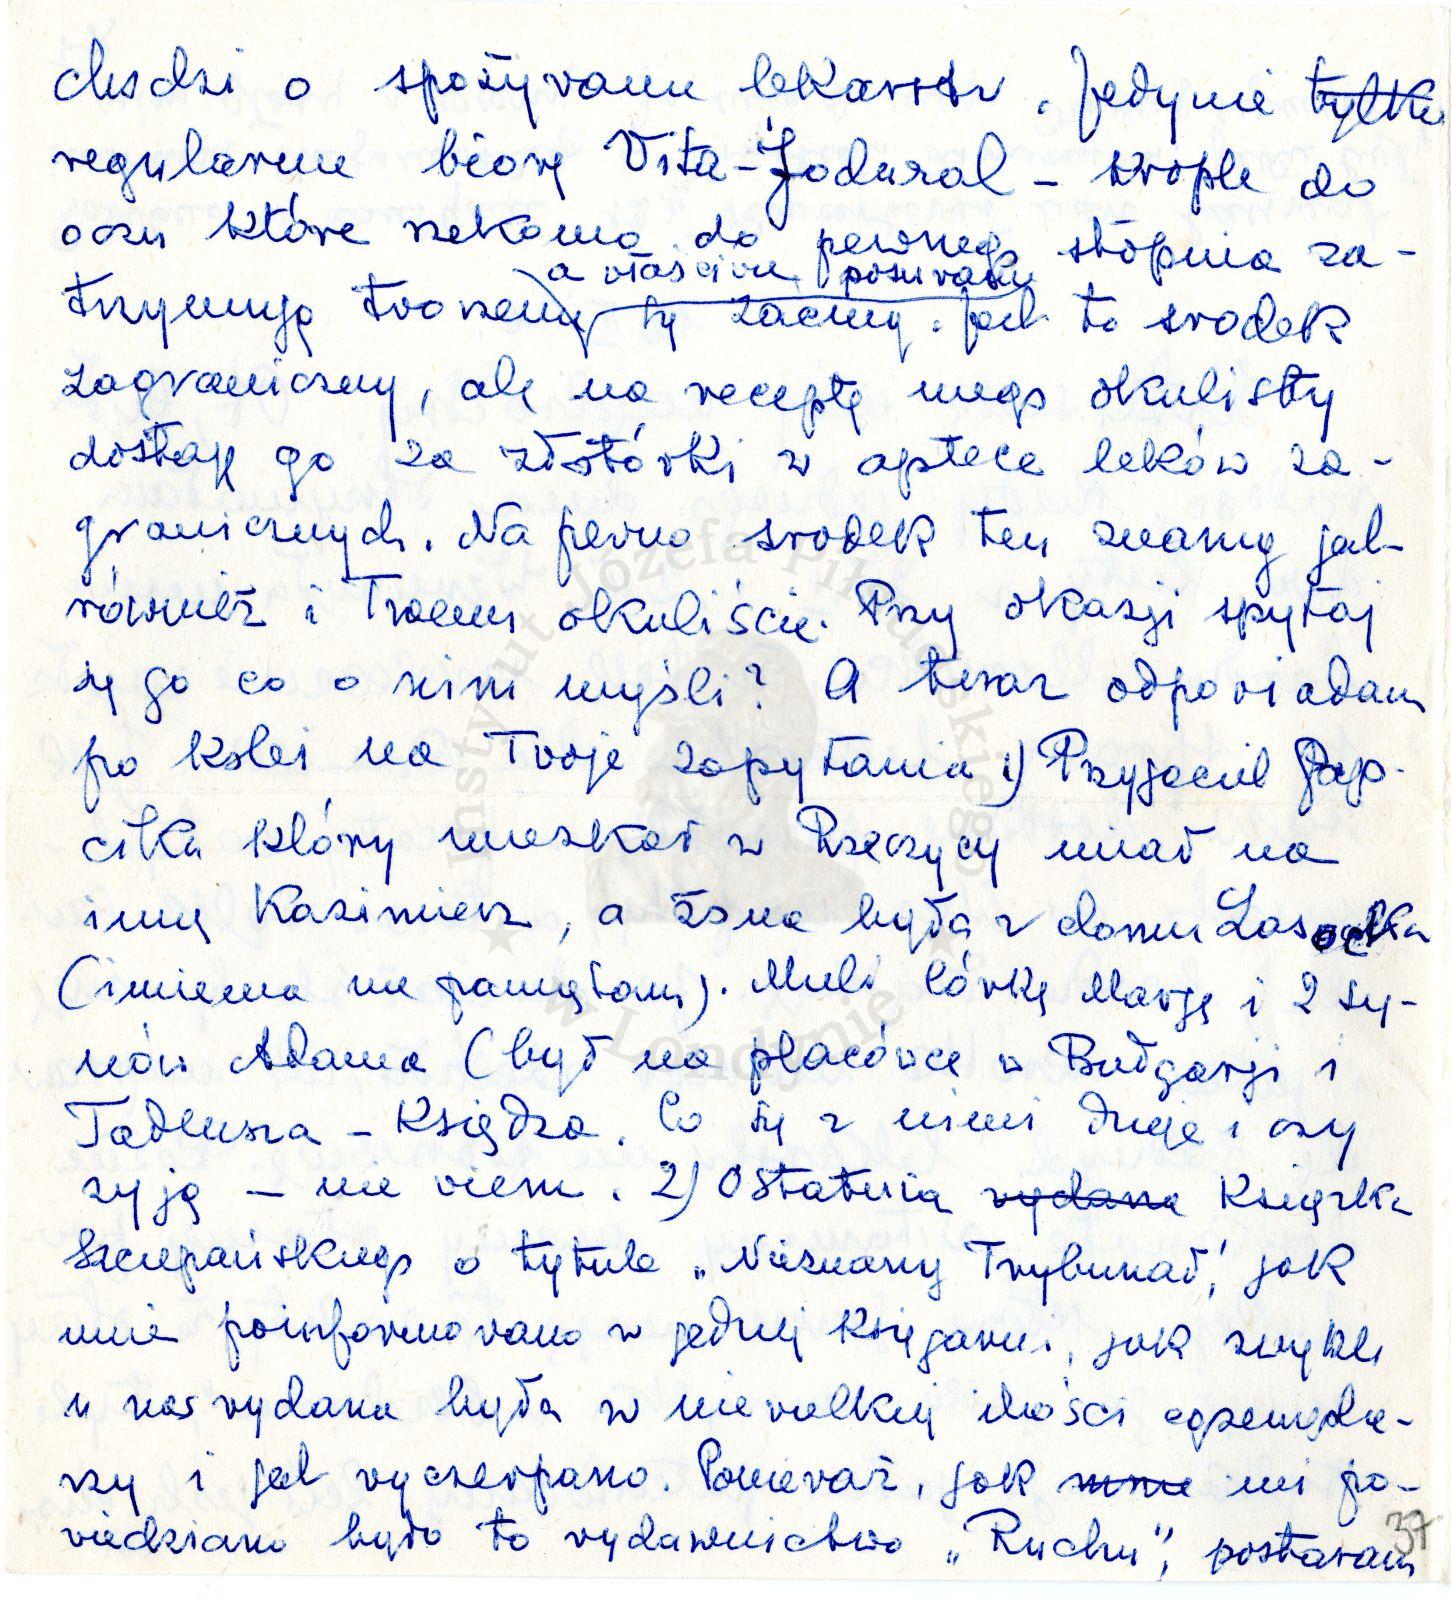 chodzi o spożywanie lekarstw. Jedynie tylko
regularnie biorę Vita-Jodurol - krople do
oczu które rzekomo do pewnego stopnia za-
a właściwie posuwanie
trzymują tworzenie się zaćmy. Jest to środek
zagraniczny, ale na receptę mego okulisty
dostaję go za złotówki w aptece leków za-
granicznych. Na pewno środek ten znany jest
również i Twemu okuliście. Przy okazji spytaj
się go co o nim myśli? A teraz odpowiadam
po kolei na Twoje zapytania 1) Przyjaciel
który mieszkał w Rzeczycy miał na
imię Kazimierz, a żona była z domu Lasocka
(imienia nie pamiętam). Mieli córkę Marję i 2 sy-
nów Adama (był na placówce w Bułgarji i
Tadeusza - Księdza. Co się z nimi dzieje i czy
żyją - nie wiem. 2) Ostatnia wydana Książka
Szczepańskiego o tytule „Nieznany Trybunał”, jak
mnie poinformowano w jednej Księgarni, jak zwykle
u nas wydana była w niewielkiej ilości egzempla-
rzy i jest wyczerpana. Ponieważ, jak mnie mi po-
wiedziano było to wydawnictwo „Ruchu”, postaram
37
Instytut Józefa Piłsudskiego
w Londynie